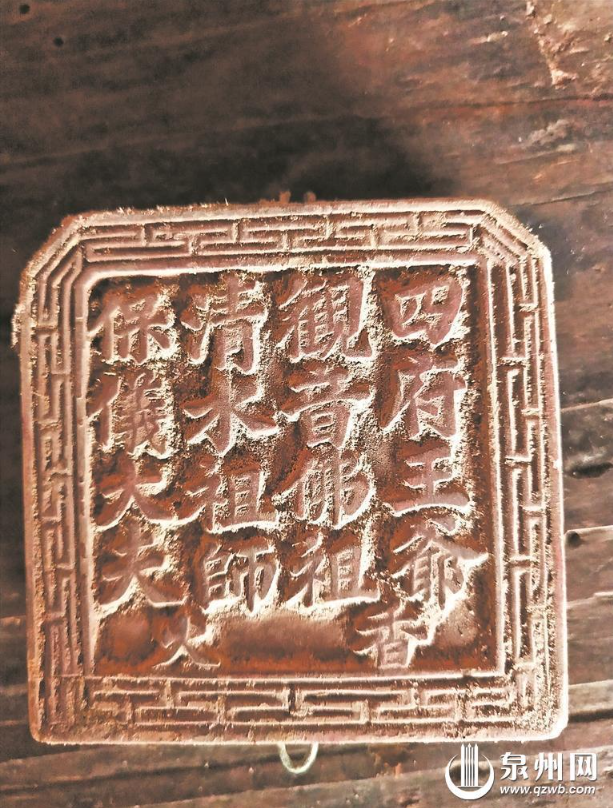 四府王爺
觀音佛祖
清水祖師
保儀大夫
香火
泉州网
www.qzwb.com